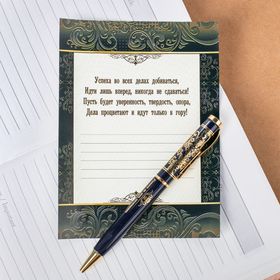 Успеха во всех делах добиваться,
Идти лишь вперед, никогда не сдаваться!
Пусть будет уверенность, твердость, опора,
Дела процветают и идут только в гору!